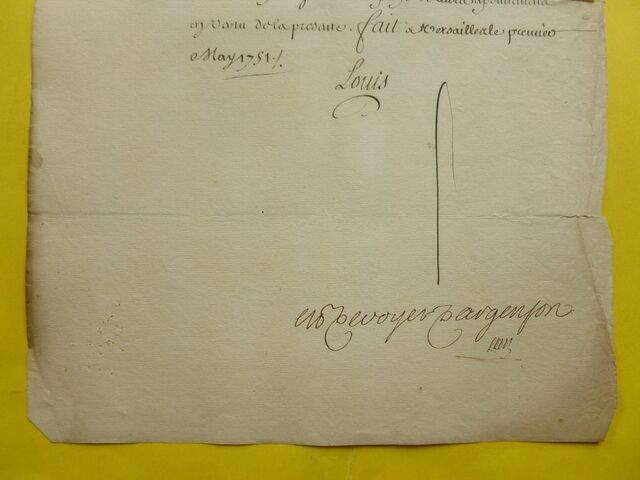 en vertu de la presente. fait a Versailles le premier
May 1751./.
Louis
M P De voyer D'argenson